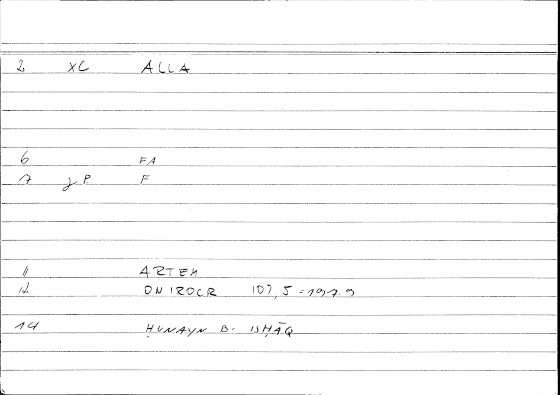 2 XC ALLA
6 FA
7 gP. F
11 ARTEM
12 ONIROCR 107,5 = 197.9
14 ḤUNAYN B. ISḤĀQ